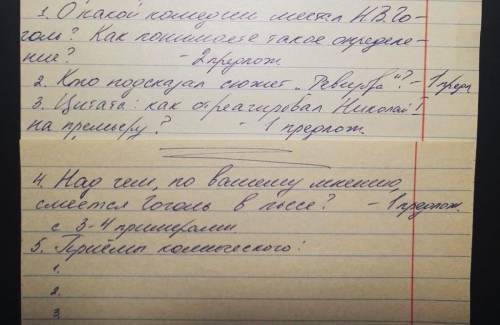 1. О какой комедии мечтал Н.В.Го-
голь? Как понимаете такое определе-
ние? - 2 предлож
2. Кто подсказал сюжет „Ревизора"? - 1 предл
3. Цитата: как отреагировал Николай I
на премьеру? - 1 предлож.
4. Над чем, по вашему мнению,
смеётся Гоголь в пьесе? - 1 предлож.
с 3-4 примерами.
5. Приёмы комического:
1.
2.
3.